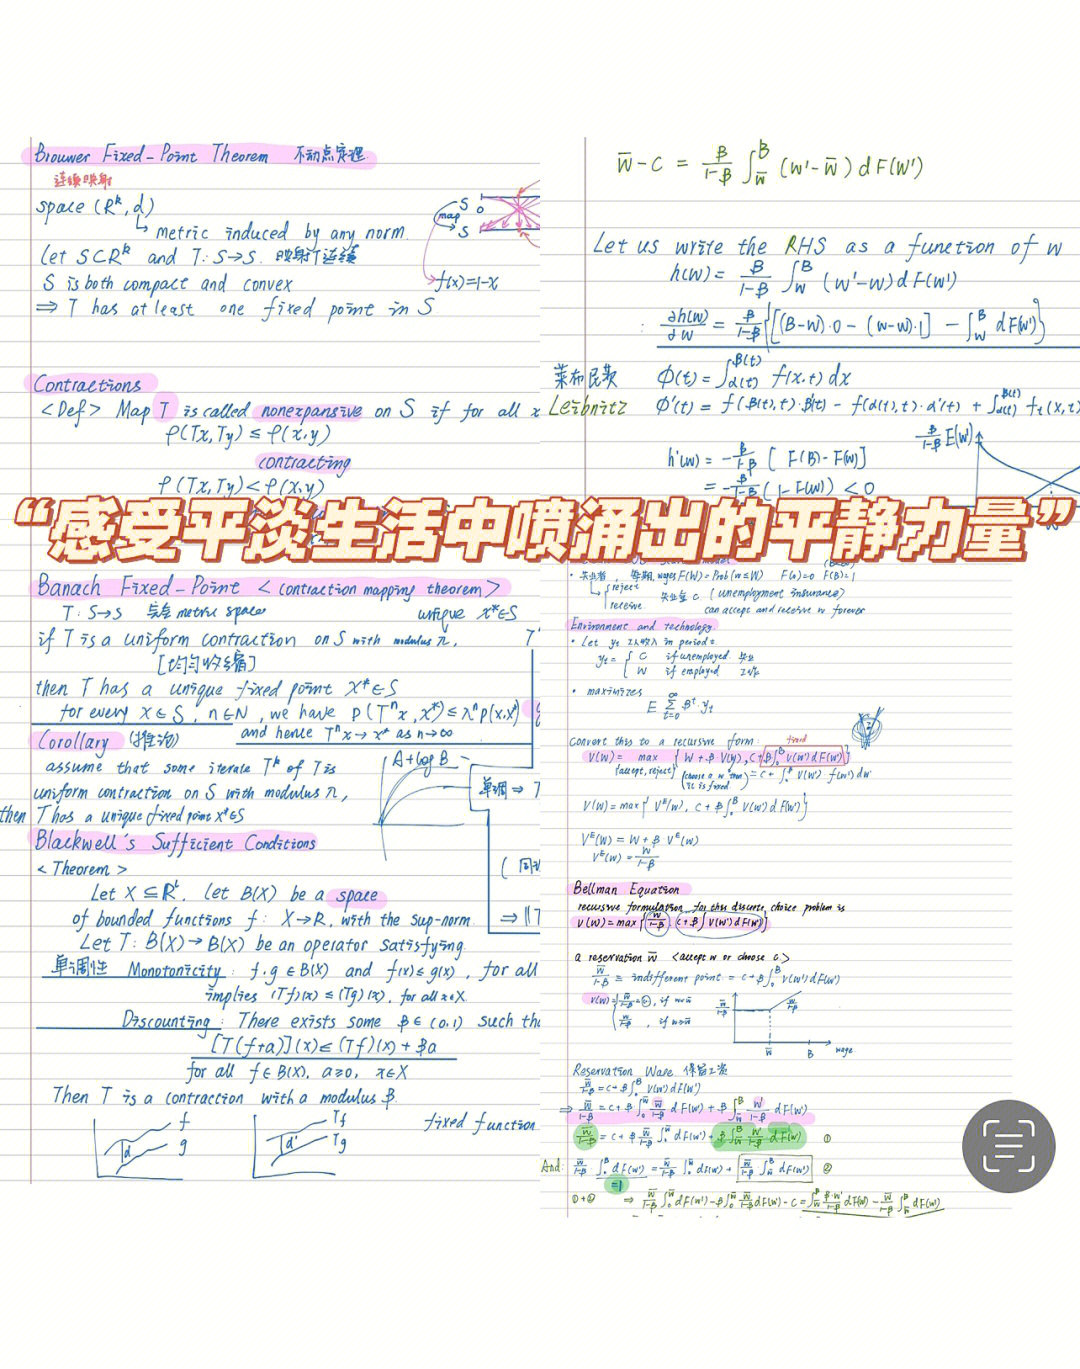 Brouwer Fixed-Point Theorem 不动点定理
连续映射
space (Rᵏ, d)
metric induced by any norm.
Let S⊂Rᵏ and T: S→S. 映射T连续
S is both compact and convex
⇒ T has at least one fixed point in S.
map
S 0
S
f(x)=1-x
Contractions
<Def> Map T is called nonexpansive on S if for all x
ρ(Tx,Ty) ≤ ρ(x,y)
contracting
ρ(Tx,Ty) < ρ(x,y)
“感受平淡生活中喷涌出的平静力量”
Banach Fixed-Point <contraction mapping theorem>
T: S→S 完备 metric space unique x*∈S
if T is a uniform contraction on S with modulus λ,
[均匀收缩]
then T has a unique fixed point X*∈S
for every x∈S, n∈N, we have ρ(Tⁿx, x*) ≤ λⁿρ(x,x*)
and hence Tⁿx→x* as n→∞
Corollary (推论)
assume that some iterate Tᵏ of T is
uniform contraction on S with modulus λ,
then T has a unique fixed point x*∈S
A+log B
单调 ⇒
Blackwell's Sufficient Conditions
<Theorem>
Let X ⊆ Rᴸ, let B(X) be a space
of bounded functions f: X→R, with the sup-norm.
Let T: B(X)→B(X) be an operator satisfying
单调性 Monotonicity: f.g ∈ B(X) and f(x) ≤ g(x), for all
implies (Tf)(x) ≤ (Tg)(x), for all x∈X.
Discounting: There exists some β∈(0,1) such tha
[T(f+a)](x) ≤ (Tf)(x) + βa
for all f∈B(X), a≥0, x∈X
Then T is a contraction with a modulus β.
f
g
d
Tf
Tg
d'
fixed function
w̄-C = β/(1-β) ∫_w̄^B (w'-w̄) dF(w')
Let us write the RHS as a function of w
h(w) = β/(1-β) ∫_w^B (w'-w) dF(w')
∂h(w)/∂w = β/(1-β) {[(B-w)·0 - (w-w)·1] - ∫_w^B dF(w')}
莱布尼茨 Φ(t) = ∫_α(t)^β(t) f(x,t) dx
Leibnitz Φ'(t) = f(β(t),t)·β'(t) - f(α(t),t)·α'(t) + ∫_α(t)^β(t) f_t(x,t)
β/(1-β) E(w')
h'(w) = -β/(1-β) [F(B)-F(w)]
= -β/(1-β) (1-F(w)) < 0
• 失业者, 每期 wages F(W)=Prob(w≤W) F(0)=0 F(B)=1
reject
receive
失业金 c. (unemployment insurance)
can accept and receive w forever
Environment and technology.
• Let yt 工人收入 in period t
yt = { C if unemployed 失业
W if employed 工作
• maximizes
E Σ_{t=0}^∞ βᵗ yt
Convert this to a recursive form: fixed
V(W) = max {W + βV(W), C+β∫₀^B V(w')dF(w')}
{accept, reject}
V(W) = max{Vᴱ(w), C+β∫₀^B V(w')dF(w')}
Vᴱ(w) = W + βVᴱ(w)
Vᴱ(w) = W/(1-β)
Bellman Equation
recursive formulation for this discrete choice problem is
V(W) = max {W/(1-β), C+β∫V(w')dF(w')}
a reservation w̄ <accept w or choose c>
w̄/(1-β) = indifferent point = C+β∫₀^B V(w')dF(w')
w̄
B
wage
Reservation Wage 保留工资
w̄/(1-β) = C+β∫₀^B V(w')dF(w')
⇒ w̄/(1-β) = C+β∫₀^w̄ w̄/(1-β) dF(w') + β∫_w̄^B w'/(1-β) dF(w')
w̄/(1-β) = C+β w̄/(1-β) ∫₀^w̄ dF(w') + β∫_w̄^B w'/(1-β) dF(w') ①
And: w̄/(1-β) ∫₀^B dF(w') = w̄/(1-β) ∫₀^w̄ dF(w') + w̄/(1-β) ∫_w̄^B dF(w') ②
=1